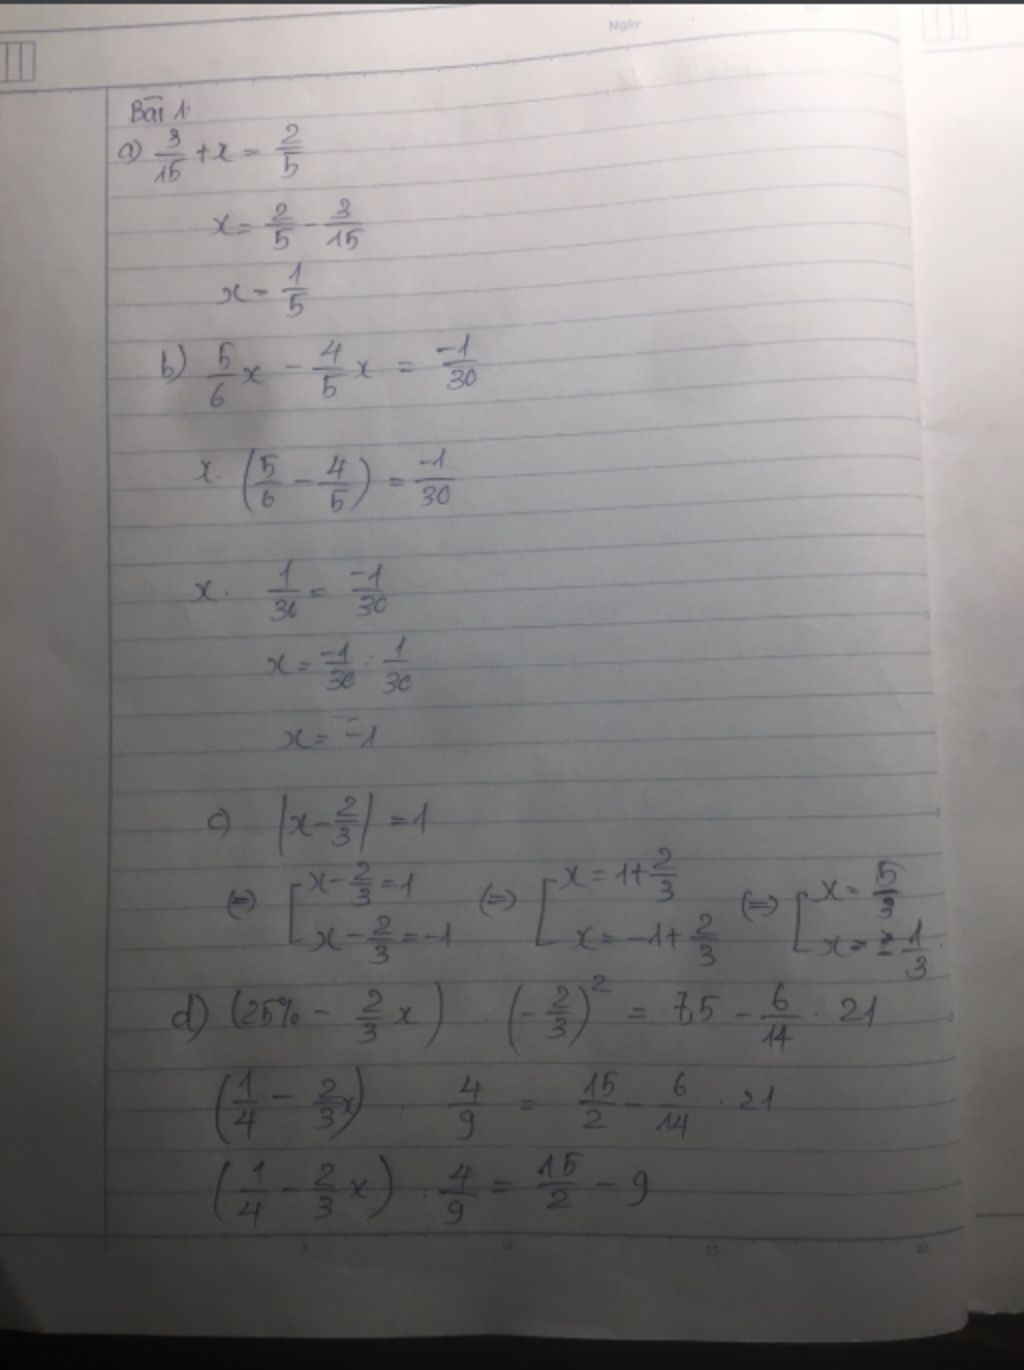 Ngày
Bài 1.
a) 3/15 + x = 2/5
x = 2/5 - 3/15
x = 1/5
b) 5/6 x - 4/5 x = -1/30
x. (5/6 - 4/5) = -1/30
x. 1/30 = -1/30
x = -1/30 : 1/30
x = -1
c) |x - 2/3| = 1
(=) [ x - 2/3 = 1 (=) [ x = 1 + 2/3 (=) [ x = 5/3
x - 2/3 = -1 x = -1 + 2/3 x = -1/3
d) (25% - 2/3 x) (-2/3)² = 7,5 - 6/14 . 21
(1/4 - 2/3 x) . 4/9 = 15/2 - 6/14 . 21
(1/4 - 2/3 x) . 4/9 = 15/2 - 9
5 10 15 20